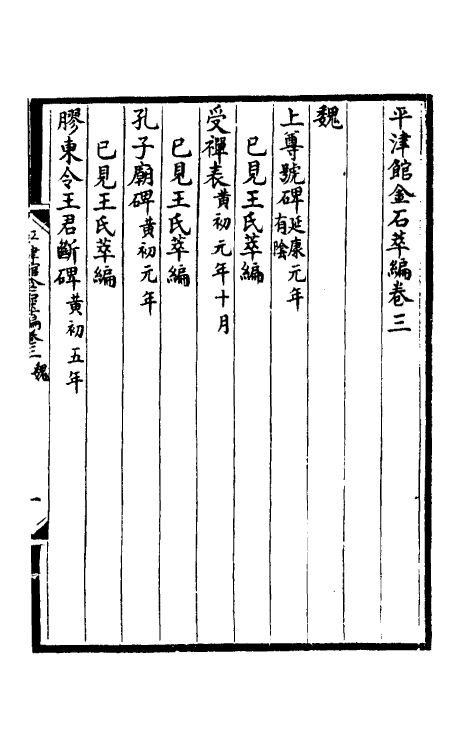 平津館金石萃編卷三
魏
上尊號碑延康元年有陰
已見王氏萃編
受禪表黃初元年十月
已見王氏萃編
孔子廟碑黃初元年
已見王氏萃編
膠東令王君斷碑黃初五年
平津館金石萃編卷三 魏
一